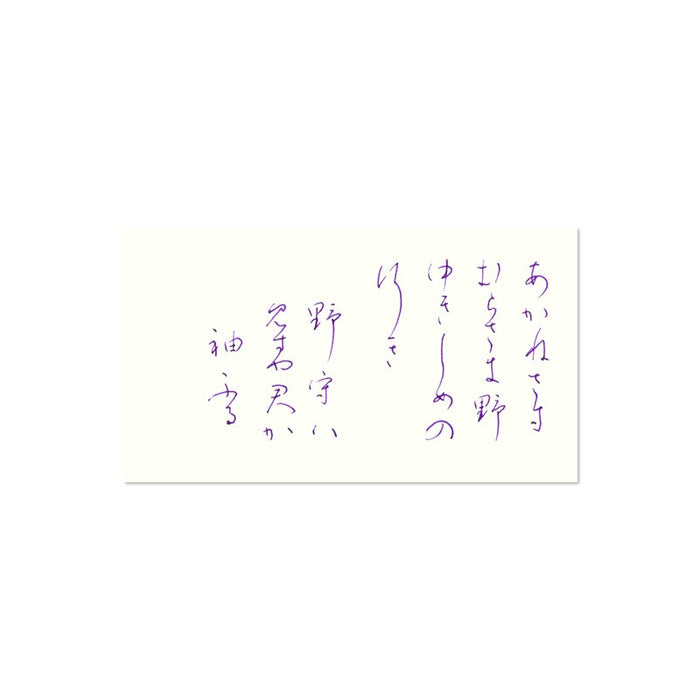 あかねさす
むらさき野
ゆきしめの
行き
野守ハ
見すや君か
袖ふる